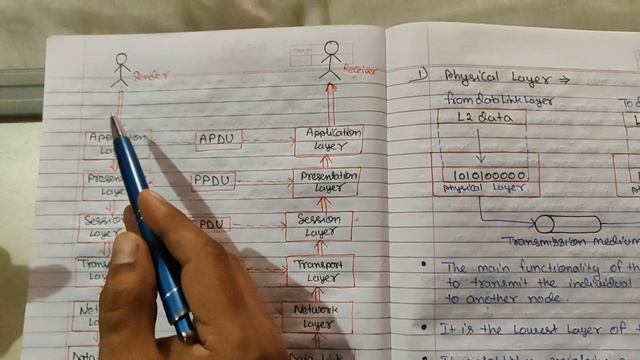 Sender
Receiver
Application
Layer
APDU
Application
Layer
PPDU
Presentation
Layer
Session
Layer
PDU
Session
Layer
Transport
Layer
Network
Layer
Data
Data Link
1) Physical Layer →
from data Link Layer
L2 data
1010100000
physical Layer
Transmission medium
• The main functionality of th
to transmit the individual
to another node.
• It is the Lowest Layer of